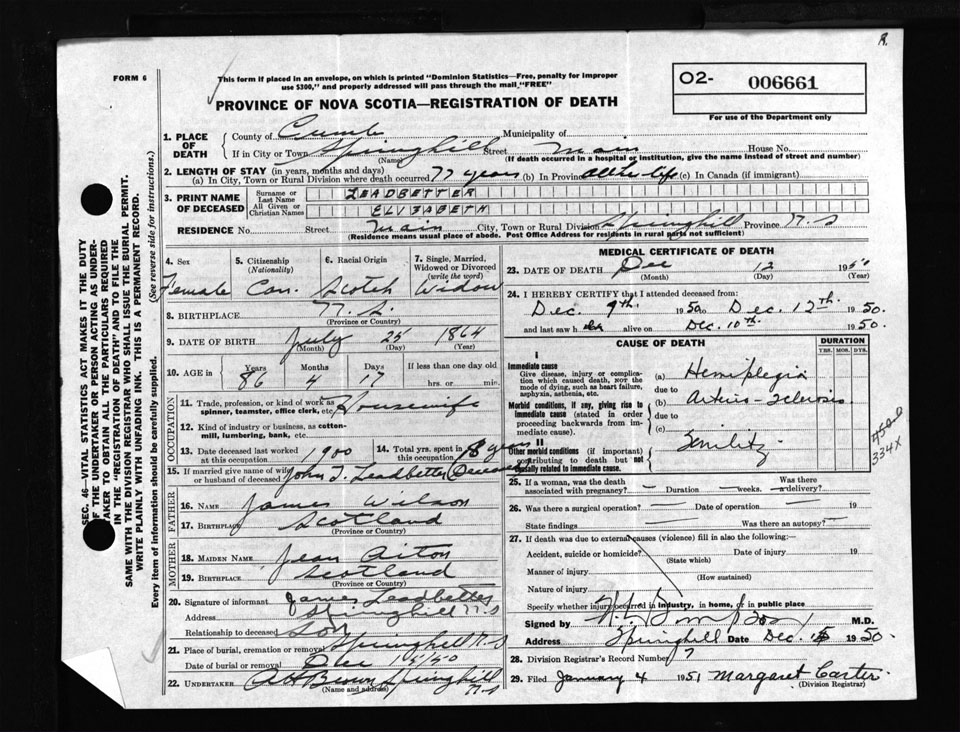 R.
FORM 6
This form if placed in an envelope, on which is printed "Dominion Statistics—Free, penalty for improper
use $300," and properly addressed will pass through the mail "FREE"
PROVINCE OF NOVA SCOTIA—REGISTRATION OF DEATH
O2- 006661
For use of the Department only
SEC. 46—VITAL STATISTICS ACT MAKES IT THE DUTY
OF THE UNDERTAKER OR PERSON ACTING AS UNDER-
TAKER TO OBTAIN ALL THE PARTICULARS REQUIRED
IN THE "REGISTRATION OF DEATH" AND TO FILE THE
SAME WITH THE DIVISION REGISTRAR WHO SHALL ISSUE THE BURIAL PERMIT.
WRITE PLAINLY WITH UNFADING INK. THIS IS A PERMANENT RECORD.
Every item of information should be carefully supplied. (See reverse side for instructions.)
1. PLACE OF DEATH
County of Cumb Municipality of
If in City or Town Springhill Street Main House No.
(Name) (If death occurred in a hospital or institution, give the name instead of street and number)
2. LENGTH OF STAY (in years, months and days)
(a) In City, Town or Rural Division where death occurred 77 years (b) In Province all her life (c) In Canada (if immigrant)
3. PRINT NAME OF DECEASED
Surname or Last Name LEADBETTER
All Given or Christian Names ELIZABETH
RESIDENCE No. Street Main City, Town or Rural Division Springhill Province N.S
(Residence means usual place of abode. Post Office Address for residents in rural parts not sufficient)
4. Sex Female
5. Citizenship (Nationality) Can.
6. Racial Origin Scotch
7. Single, Married, Widowed or Divorced (write the word) Widow
8. BIRTHPLACE N.S.
(Province or Country)
9. DATE OF BIRTH July 25 1864
(Month) (Day) (Year)
10. AGE IN Years 86 Months 4 Days 17 If less than one day old
hrs. or min.
OCCUPATION
11. Trade, profession, or kind of work as spinner, teamster, office clerk, etc. Housewife
12. Kind of industry or business, as cotton-mill, lumbering, bank, etc.
13. Date deceased last worked at this occupation 1900
14. Total yrs. spent in this occupation 18 years
15. If married give name of wife or husband of deceased John T. Leadbetter (Deceased)
FATHER
16. NAME James Wilson
17. BIRTHPLACE Scotland
(Province or Country)
MOTHER
18. MAIDEN NAME Jean Aiton
19. BIRTHPLACE Scotland
(Province or Country)
20. Signature of informant James Leadbetter
Address Springhill N.S
Relationship to deceased Son
21. Place of burial, cremation or removal Springhill N.S
Date of burial or removal Dec 15/50
22. UNDERTAKER A H Brown Springhill
(Name and address) N.S
MEDICAL CERTIFICATE OF DEATH
23. DATE OF DEATH Dec 12 1950
(Month) (Day) (Year)
24. I HEREBY CERTIFY that I attended deceased from:
Dec. 9th. 1950 Dec. 12th. 1950.
and last saw her alive on Dec. 10th. 1950.
CAUSE OF DEATH
DURATION
YRS. MOS. DYS.
I
Immediate cause
Give disease, injury or complication which caused death, not the mode of dying, such as heart failure, asphyxia, asthenia, etc.
(a) Hemiplegia
due to
Morbid conditions, if any, giving rise to immediate cause (stated in order proceeding backwards from immediate cause).
(b) Arterio-sclerosis
due to
(c)
II
Other morbid conditions (if important) contributing to death but not causally related to immediate cause.
Senility
334X
25. If a woman, was the death associated with pregnancy? — Duration — weeks. Was there a delivery? —
26. Was there a surgical operation? — Date of operation — 19
State findings — Was there an autopsy? —
27. If death was due to external causes (violence) fill in also the following:—
Accident, suicide or homicide? Date of injury 19
(State which)
Manner of injury
(How sustained)
Nature of injury
Specify whether injury occurred in industry, in home, or in public place
Signed by M.D.
Address Springhill Date Dec. 15 1950.
28. Division Registrar's Record Number 7
29. Filed January 4 1951 Margaret Carter.
(Division Registrar)